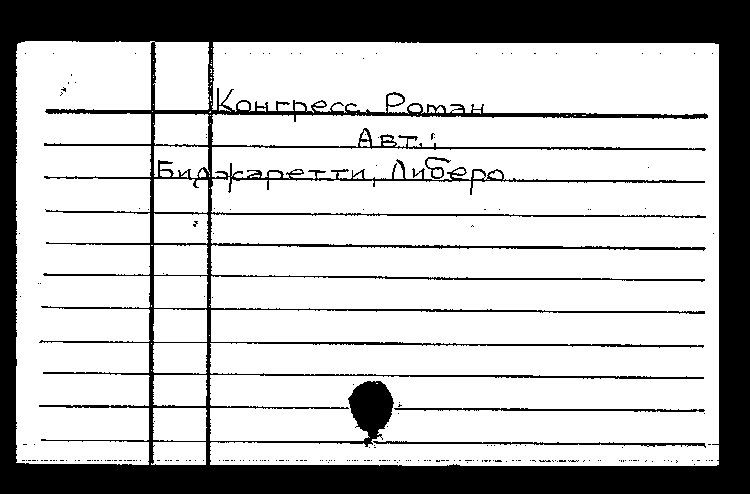 Конгресс. Роман
Авт.:
Биджаретти, Либеро